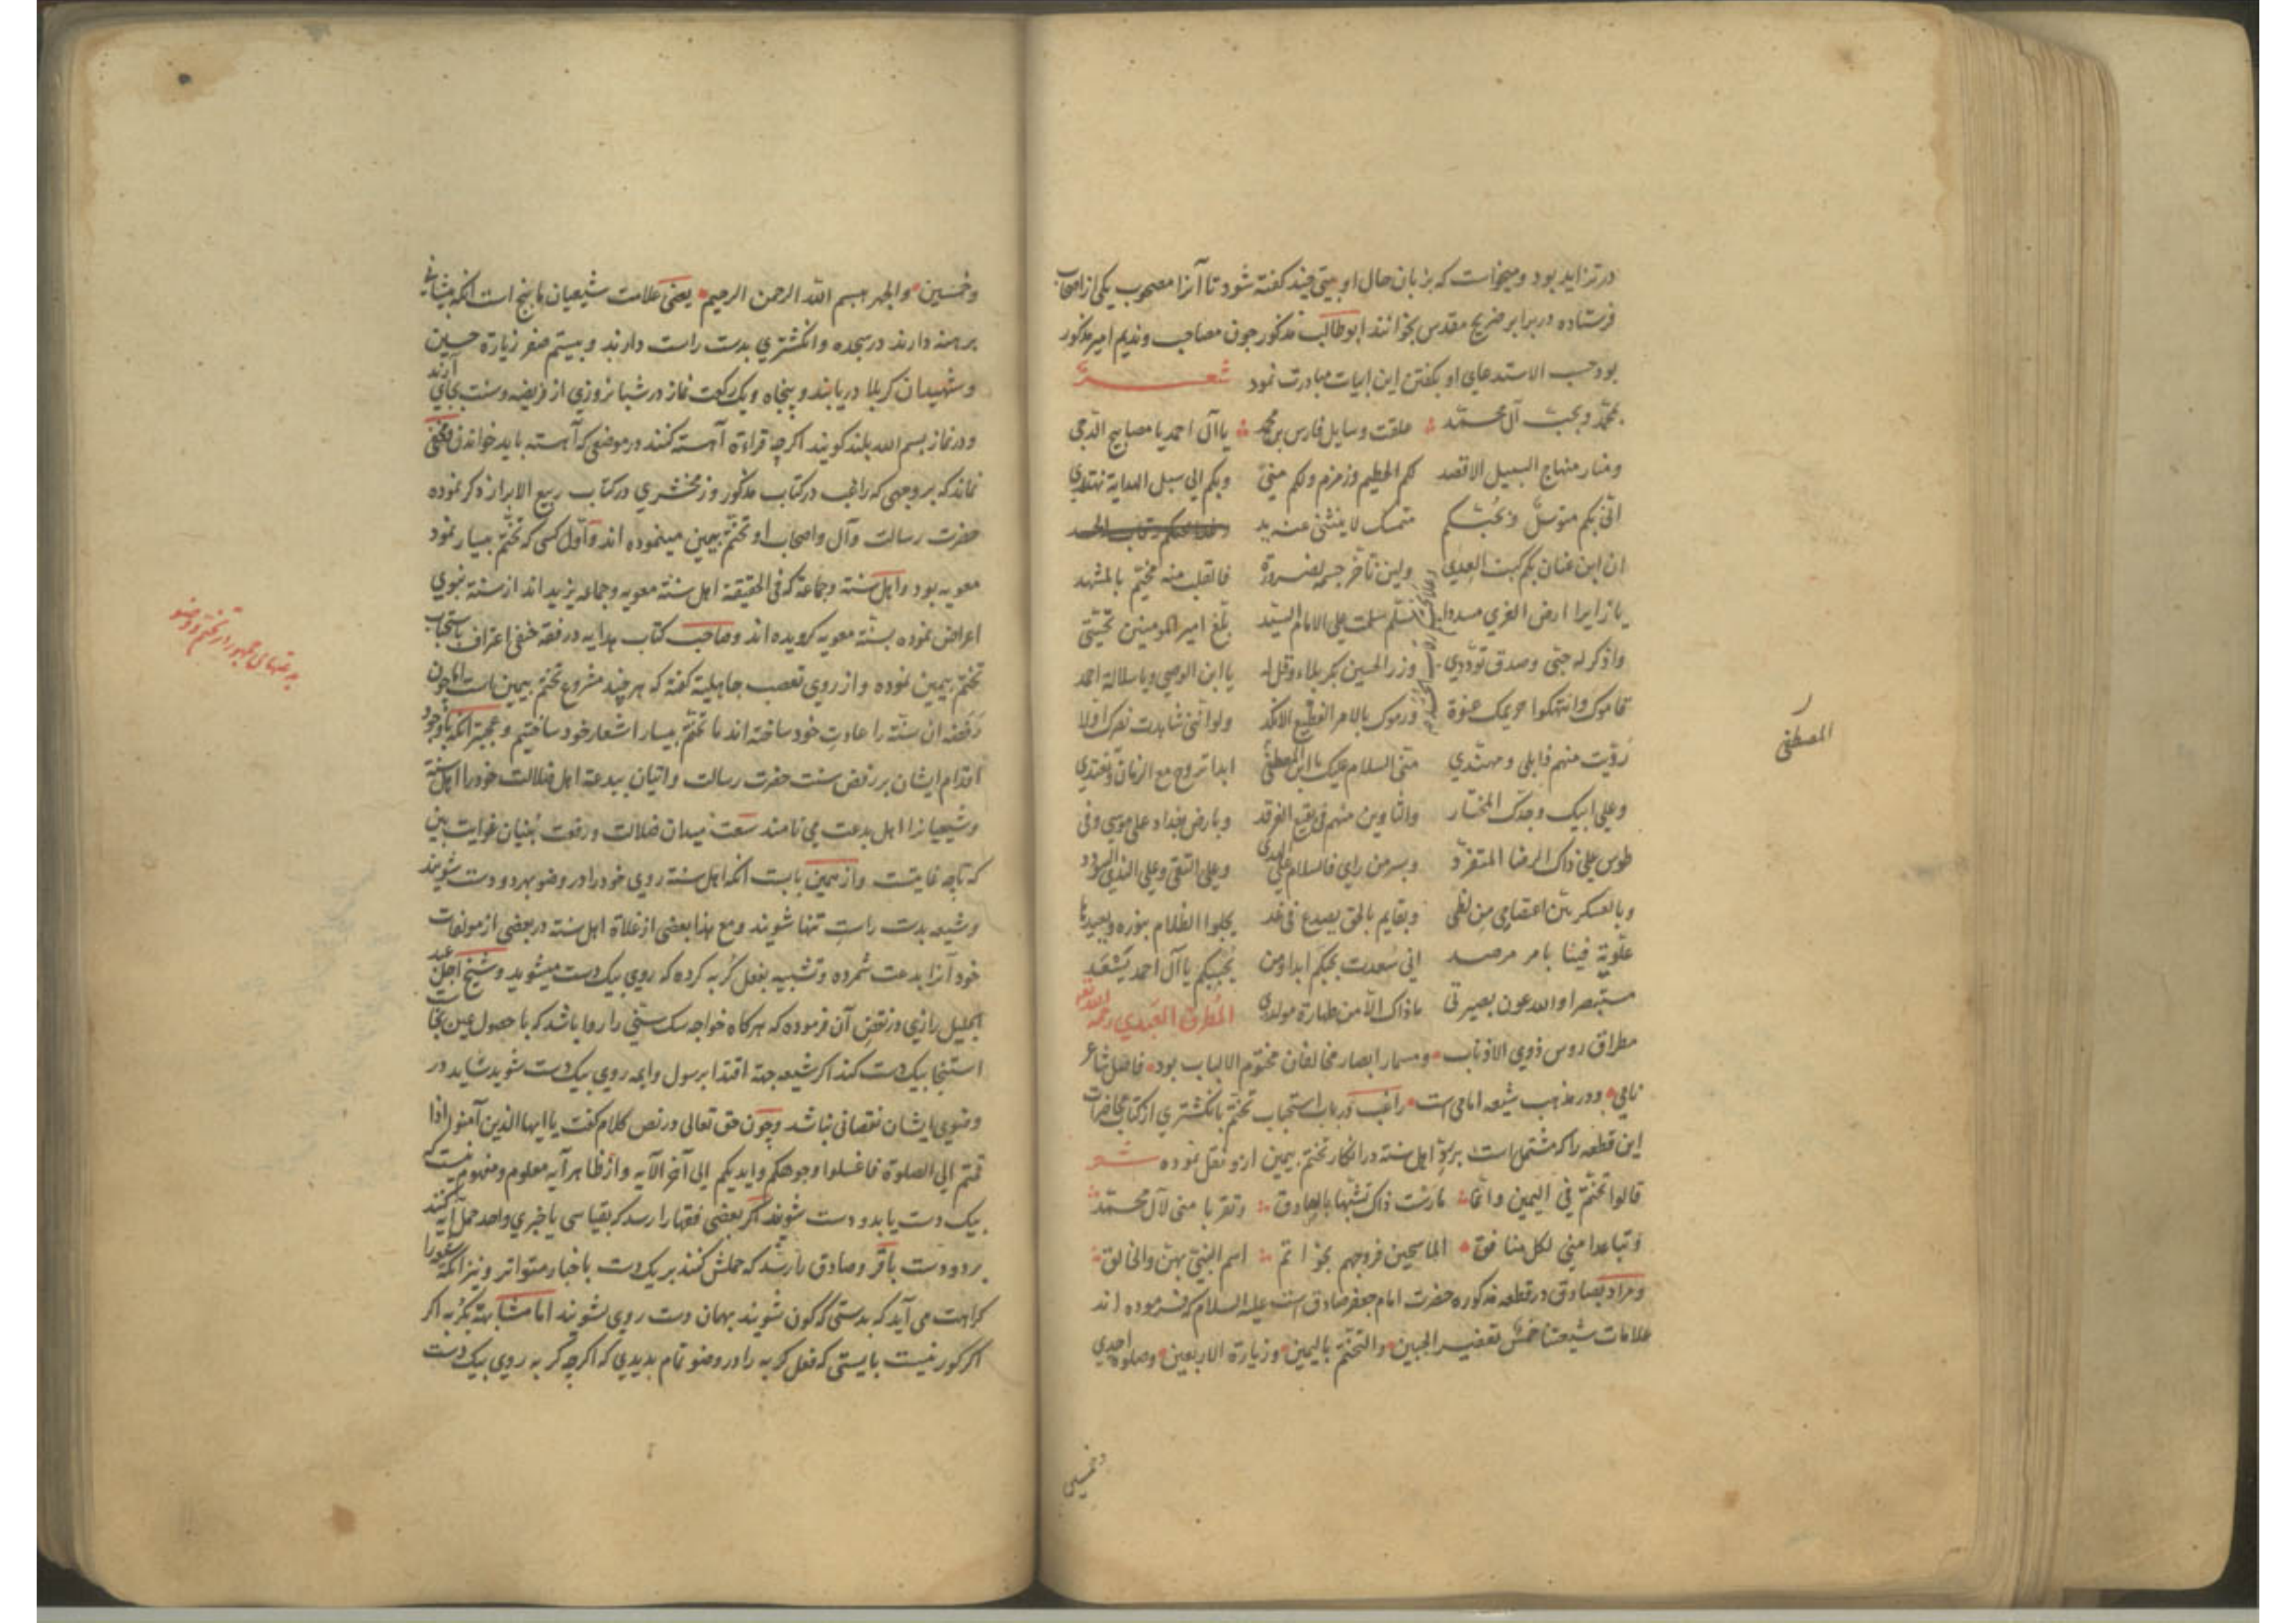 در تزاید بود و میخواست که بزبان حال او بیتی چند گفته شود تا آنرا مصحوب یکی از اصحاب
فرستاده در برابر ضریح مقدس بخوانند ابوطالب مذکور چون مصاحب و ندیم امیر مذکور
بود حسب الاستدعای او بگفتن این ابیات مبادرت نمود شعر
بمحمد و بحب آل محمد علقت وسایل فارس بن محمد یا آل احمد یا مصابیح الدجی
ومنار منهاج السبیل الاقصد لکم الحطیم وزمزم ولکم منی وبکم الی سبل الهدایة نهتدی
انی بکم متوسل وبحبکم متمسک لا ینثنی عنه یدی
ان ابن عنان بکم کبت العدی ولئن تاخر جسمه لضرورة فالقلب منه مخیم بالمشهد
یا زایرا ارض الغری مسددا سلم سلمت علی الامام السید بلغ امیر المومنین تحیتی
واذکر له حبی وصدق توددی وزر الحسین بکربلاء وقل له یا ابن الوصی ویا سلالة احمد
قاموک وانتهکوا حریمک عنوة ورموک بالامر الفظیع الانکد ولو اننی شاهدت نصرک اولا
رویت منهم ذابلی ومهندی منی السلام علیک یا ابن المصطفی ابدا تروح مع الزمان وتغتدی
وعلی ابیک وجدک المختار والثاوین منهم فی بقیع الغرقد وبارض بغداد علی موسی وفی
طوس علی ذاک الرضا المتفرد وبسر من رای فالسلام علی الهدی وعلی التقی وعلی الندی والسودد
وبالعسکریین اعتصامی من لظی وبقایم بالحق یصدع فی غد یجلوا الظلام بنوره ویعیدها
علویة فینا بامر مرصد انی سعدت بحبکم ابدا ومن یحببکم یا آل احمد یسعد
مستبصرا والله عون بصیرتی ما ذاک الا من طهارة مولدی المطرق العبدی رحمه الله تعالی
مطراق روس ذوی الاذناب و مسمار ابصار مخالفان مختوم الالباب بود فاضل شاعر
نامی و در مذهب شیعه امامی است راغب در باب استحباب تختم بانگشتری از کتاب محاضرات
این قطعه را که مشتمل است بر رد اهل سنة در انکار تختم بیمین ازو نقل نموده شعر
قالوا تختم فی الیمین وانما مارست ذاک تشبها بالصادق وتقربا منی لآل محمد
وتباعدا منی لکل منافق الماسحین فروجهم بخواتم اسم النبی بهن والخالق
و مراد بصادق در قطعه مذکوره حضرت امام جعفر صادق است علیه السلام که فرموده اند
علامات شیعتنا خمس تعفیر الجبین والتختم بالیمین وزیارة الاربعین وصلوة احدی
وخمسین
المصطفی
وخمسین والجهر ببسم الله الرحمن الرحیم یعنی علامت شیعیان ما پنج است آنکه پیشانی
برهنه دارند در سجده و انگشتری بدست راست دارند و بیستم صفر زیارة حسین
و شهیدان کربلا دریابند و پنجاه و یک رکعت نماز در شبانروزی از فریضه و سنت بجای آرند
و در نماز بسم الله بلند گویند اگرچه قراءة آهسته کنند در موضعی که آهسته باید خواندن و مخفی
نماند که بر وجهی که راغب در کتاب مذکور و زمخشری در کتاب ربیع الابرار ذکر نموده
حضرت رسالت و آل و اصحاب او تختم بیمین مینموده اند و اول کسی که تختم بیسار نمود
معویه بود و اهل سنة و جماعة که فی الحقیقة اهل سنة معویه و جماعه یزید اند از سنة نبوی
اعراض نموده بسنة معویه گرویده اند و صاحب کتاب هدایه در فقه حنفی اعتراف باستحباب
تختم بیمین نموده و از روی تعصب جاهلیة گفته که هر چند مشروع تختم بیمین است اما چون
رفضه ان سنة را عادت خود ساخته اند ما تختم بیسار اشعار خود ساختیم و عجبتر آنکه با وجود
اقدام ایشان بر رفض سنت حضرت رسالت و اتیان ببدعة اهل ضلالت خود را اهل سنة
و شیعیانرا اهل بدعت می نامند سعت میدان ضلالت و رفعت بنیان غوایت بین
که تا چه غایتست و از همین بابت آنکه اهل سنة روی خود را در وضو بهر دو دست شویند
و شیعه بدست راست تنها شویند و مع هذا بعضی از غلاة اهل سنة در بعضی از مولفات
خود آنرا بدعت شمرده و تشبیه بفعل گربه کرده که روی بیک دست میشوید و شیخ اجل عبد
الجلیل رازی در نقض آن فرموده که هر گاه خواجه سنی را روا باشد که با حصول عین نجاست
استنجا بیک دست کند اگر شیعه جهة اقتدا برسول و ایمه روی بیک دست شوید شاید در
وضوی ایشان نقصانی نباشد و چون حق تعالی در نص کلام گفت یا ایها الذین آمنوا اذا
قمتم الی الصلوة فاغسلوا وجوهکم وایدیکم الی آخر الآیه و از ظاهر آیه معلوم و مفهوم نیست که
بیک دست یا بدو دست شویند اگر بعضی فقها را رسد که بقیاسی یا خبری واحد حمل آیه کنند
بر دو دست باقر و صادق را رسد که حملش کنند بر یک دست باخبار متواتر و نیز آنکه شعورا
کراهت می آید که بدستی که کون شویند بهمان دست روی بشویند اما مشابهة بگربه اگر
اگر کور نیست بایستی که فعل گربه را در وضو تمام بدیدی که اگرچه گربه روی بیک دست